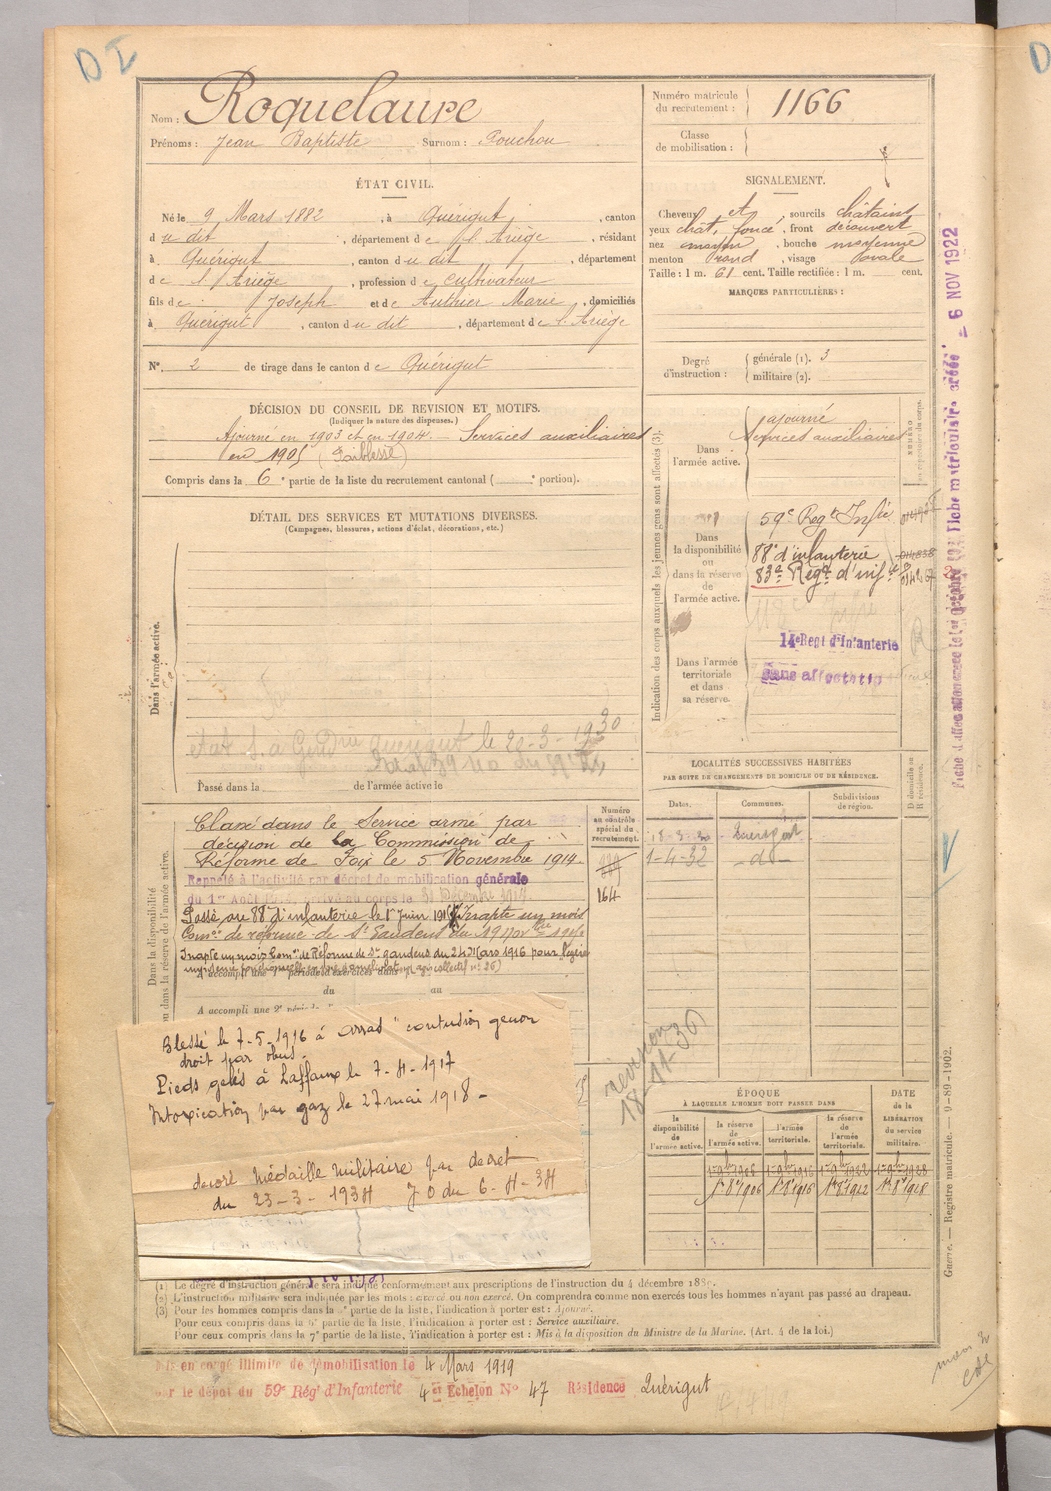 DI
Nom : Roquelaure
Prénoms : Jean Baptiste Surnom : Pouchou
Numéro matricule du recrutement : 1166
Classe de mobilisation :
ÉTAT CIVIL.
Né le 9 Mars 1882, à Quérigut, canton
du dit, département de l'Ariège, résidant
à Quérigut, canton du dit, département
de l'Ariège, profession de cultivateur
fils de Joseph et de Authier Marie, domiciliés
à Quérigut, canton du dit, département de l'Ariège
N° 2 de tirage dans le canton de Quérigut
SIGNALEMENT.
Cheveux et sourcils châtains
yeux chât. foncé, front découvert
nez moyen, bouche moyenne
menton rond, visage ovale
Taille : 1 m. 61 cent. Taille rectifiée : 1 m. cent.
MARQUES PARTICULIÈRES :
Degré d'instruction : générale (1). 3
militaire (2).
DÉCISION DU CONSEIL DE REVISION ET MOTIFS.
(Indiquer la nature des dispenses.)
Ajourné en 1903 et en 1904. — Services auxiliaires
en 1905 (Faiblesse)
Compris dans la 6e partie de la liste du recrutement cantonal ( portion).
DÉTAIL DES SERVICES ET MUTATIONS DIVERSES.
(Campagnes, blessures, actions d'éclat, décorations, etc.)
Dans l'armée active.
Quérigut le 22-3-1930
Passé dans la de l'armée active le
Indication des corps auxquels les jeunes gens sont affectés (3).
Dans l'armée active.
ajourné
Services auxiliaires
Dans la disponibilité ou dans la réserve de l'armée active.
59e Regt Infie
88e d'infanterie
83e Régt d'inf
Dans l'armée territoriale et dans sa réserve.
14e Regt d'Infanterie
Sans affectation
6 NOV 1922
LOCALITÉS SUCCESSIVES HABITÉES
PAR SUITE DE CHANGEMENTS DE DOMICILE OU DE RÉSIDENCE.
Dates. Communes. Subdivisions de région. D domicile ou R résidence.
18-3-30 Quérigut
1-4-32 -do-
Dans la disponibilité ou dans la réserve de l'armée active.
Numéro au contrôle spécial du recrutement.
164
Classé dans le Service armé par
décision de la Commission de
Réforme de Foix le 5 Novembre 1914.
Rappelé à l'activité par décret de mobilisation générale
du 1er Août 1914, arrivé au corps le 31 Décembre 1914
Passé au 88e d'infanterie le 1er Juin 1915. Inapte un mois
Comon de réforme de St Gaudens du 19 Nov
Inapte un mois Comon de Réforme de St gaudens du 24 Mars 1916 pour légère
A accompli une 1re période d'exercices dans
du au
A accompli une 2e période
Blessé le 7-5-1916 à Arras "contusion genou
droit par obus.
Pieds gelés à Laffaux le 7-4-1917
Intoxication par gaz le 27 mai 1918 -
décoré Médaille Militaire par décret
du 23-3-1934 JO du 6-4-34
révision
18-11-30
ÉPOQUE
À LAQUELLE L'HOMME DOIT PASSER DANS
la disponibilité de l'armée active. la réserve de l'armée active. l'armée territoriale. la réserve de l'armée territoriale.
DATE de la LIBÉRATION du service militaire.
1er 8bre 1906 1er 8bre 1916 1er 8bre 1922 1er 8bre 1928
Guerre. — Registre matricule. — 9-89-1902.
(1) Le degré d'instruction générale sera indiqué conformément aux prescriptions de l'instruction du 4 décembre 1889.
(2) L'instruction militaire sera indiquée par les mots : exercé ou non exercé. On comprendra comme non exercés tous les hommes n'ayant pas passé au drapeau.
(3) Pour les hommes compris dans la 5e partie de la liste, l'indication à porter est : Ajourné.
Pour ceux compris dans la 6e partie de la liste, l'indication à porter est : Service auxiliaire.
Pour ceux compris dans la 7e partie de la liste, l'indication à porter est : Mis à la disposition du Ministre de la Marine. (Art. 4 de la loi.)
Mis en congé illimité de démobilisation le 4 Mars 1919
par le dépôt du 59e Rég' d'Infanterie 4e Echelon N° 47 Résidence Quérigut